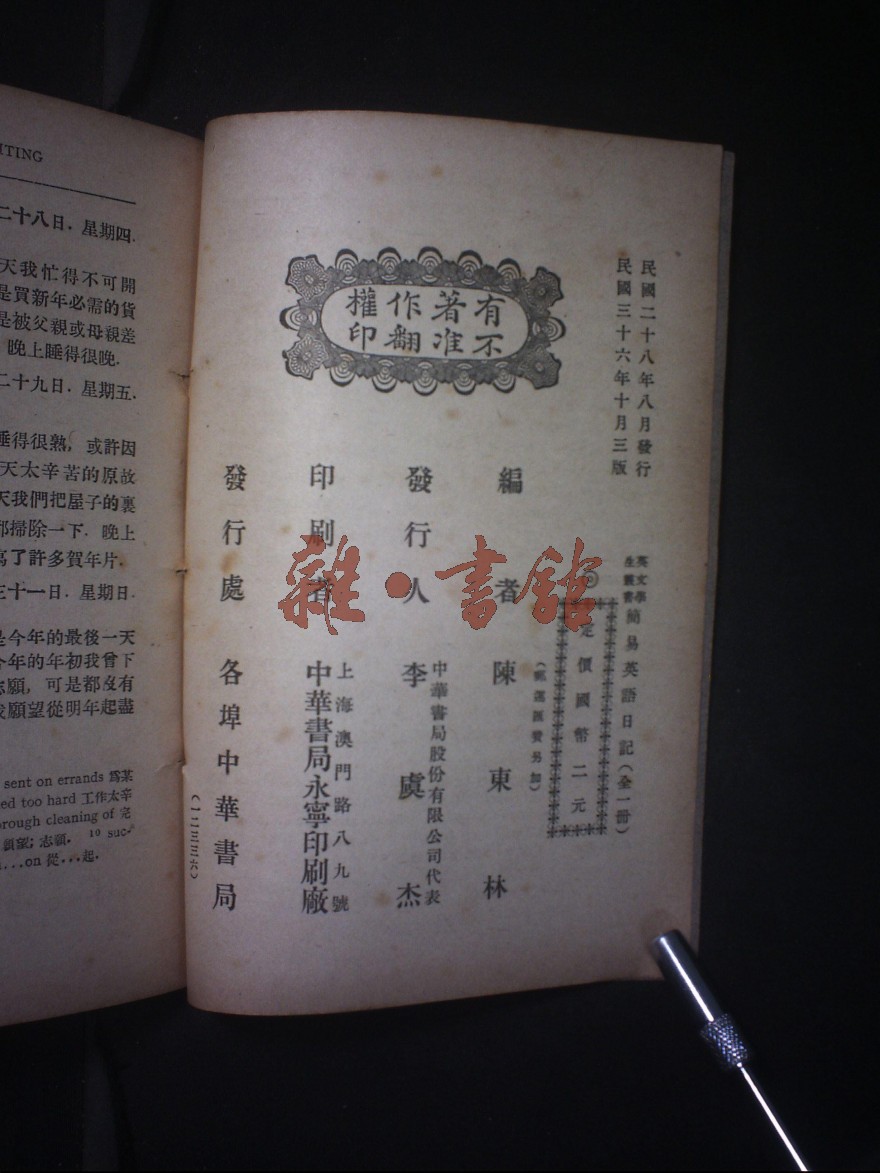 ITING
二十八日．星期四．
天我忙得不可開
是買新年必需的貨
是被父親或母親差
晚上睡得很晚．
二十九日．星期五．
睡得很熟，或許因
天太辛苦的原故
天我們把屋子的裏
都掃除一下．晚上
寫了許多賀年片．
三十一日．星期日．
是今年的最後一天
今年的年初我曾下
志願，可是都沒有
我願望從明年起盡
sent on errands 爲某
ed too hard 工作太辛
orough cleaning of 完
願望；志願． 10 suc-
...on 從...起．
民國二十八年八月發行
民國三十六年十月三版
有著作權
不准翻印
英文學
生叢書
簡易英語日記（全一冊）
定價國幣二元
（郵運匯費另加）
編者 陳東林
發行人 李虞杰
中華書局股份有限公司代表
印刷者
上海澳門路八九號
中華書局永寧印刷廠
發行處 各埠中華書局
（一二三三六）
雜·書館